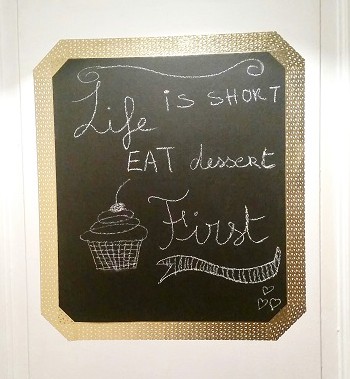 Life is short
EAT dessert
First